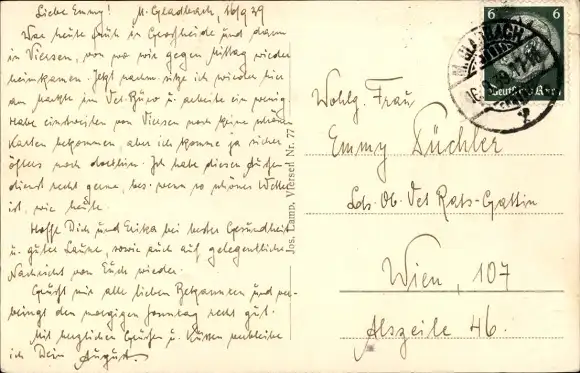 Liebe Emmy! M. Gladbach, 16/9 39
War heute früh in Grefheide und dann
in Viersen, von wo wir gegen Mittag wieder
heimkamen. Jetzt nachm. sitze ich wieder hier
am Markte im Vet-Büro u. arbeite ein wenig.
Habe einstweilen von Viersen noch keine schönen
Karten bekommen, aber ich komme ja sicher
öfters noch dorthin. Ich habe diesen Außen-
dienst recht gerne, bes. wenn so schönes Wetter
ist, wie heute.
Hoffe Dich und Erika bei bester Gesundheit
u. guter Laune, sowie auch auf gelegentliche
Nachricht von Euch wieder.
Grüßt mir alle lieben Bekannten und ver-
bringt den morgigen Sonntag recht gut.
Mit herzlichen Grüßen u. Küssen verbleibe
ich Dein August.
Jos. Lamp, Viersen Nr. 77
6 6
Deutsches Reich
M. GLADBACH
Wohlg. Frau
Emmy Püchler
Lds. Ob. Vet Rats-Gattin
Wien, 107
Alszeile 46.